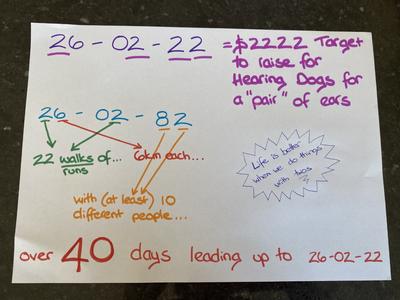 26-02-22 = $2222 Target
to raise for
Hearing Dogs for
a "pair" of ears
26-02-82
22 walks of...
runs
6km each...
with (at least) 10
different people...
Life is better
when we do things
with twos
over 40 days leading up to 26-02-22